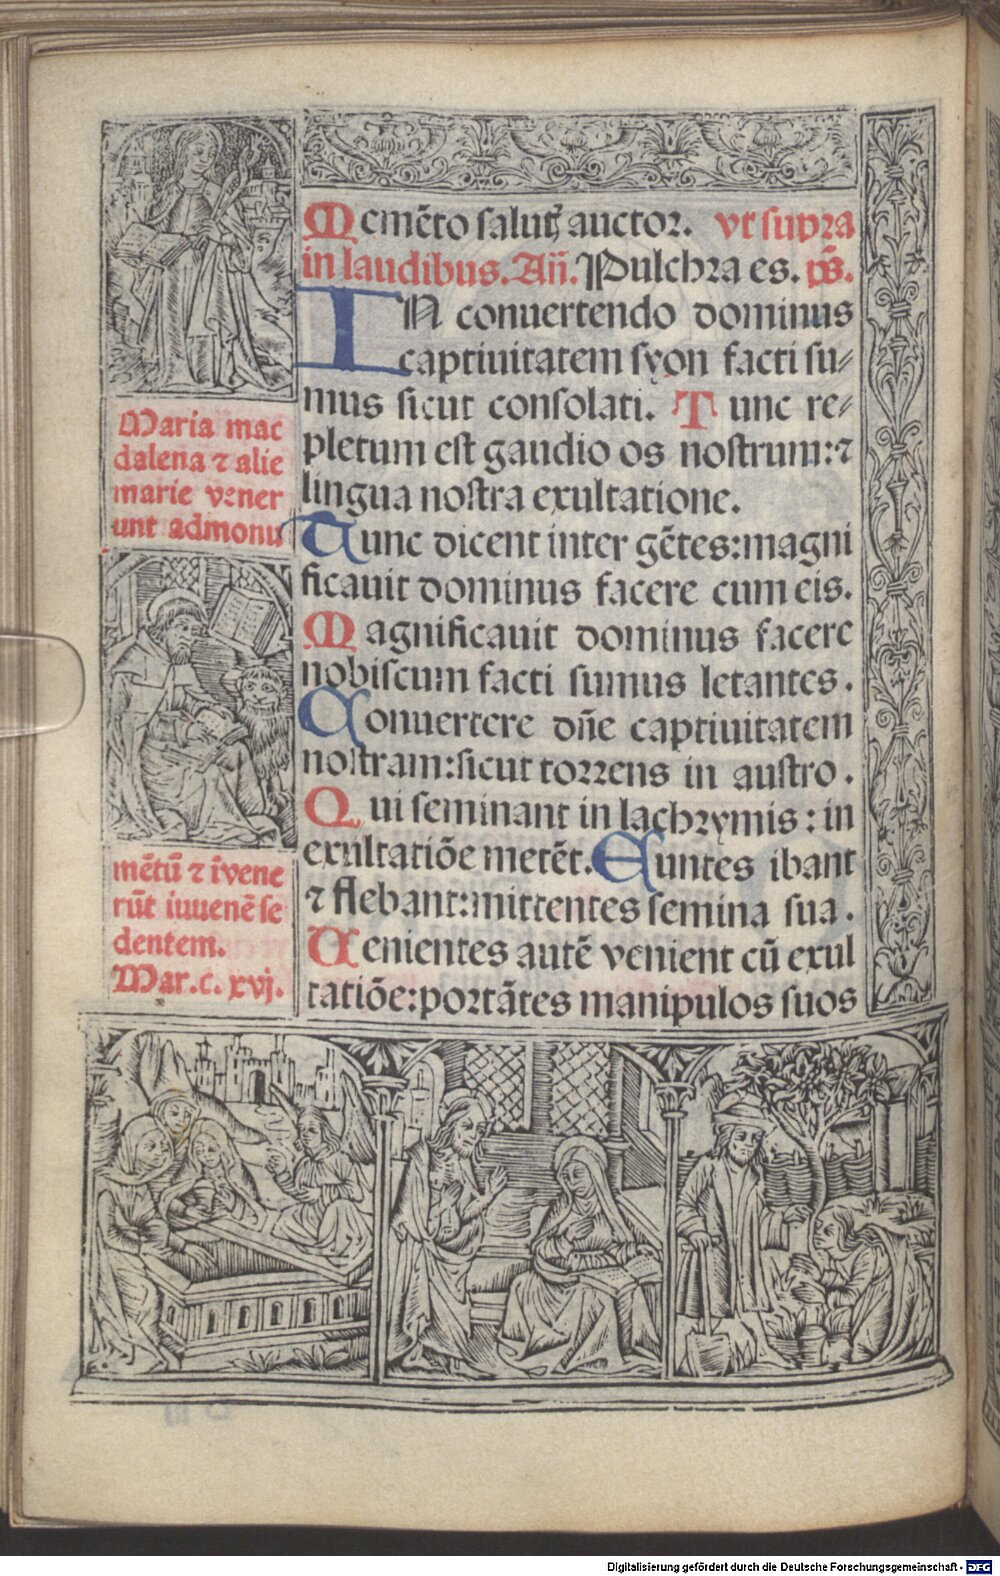 Memẽto salutꝫ auctor. vt supra
in laudibus. Añ. Pulchra es. p̃s.
IN conuertendo dominus
captiuitatem syon facti su⸗
mus sicut consolati. Tunc re⸗
pletum est gaudio os nostrum: ⁊
lingua nostra exultatione.
Tunc dicent inter gẽtes: magni
ficauit dominus facere cum eis.
Magnificauit dominus facere
nobiscum facti sumus letantes.
Conuertere dñe captiuitatem
nostram: sicut torrens in austro.
Qui seminant in lachrymis: in
exultatiõe metẽt. Euntes ibant
⁊ flebant: mittentes semina sua.
Uenientes autẽ venient cũ exul
tatiõe: portãtes manipulos suos
Maria mac
dalena ⁊ alie
marie vener
unt ad monu
mẽtũ ⁊ ĩvene
rũt iuuenẽ se
dentem.
Mar. c. xvj.
Digitalisierung gefördert durch die Deutsche Forschungsgemeinschaft - DFG